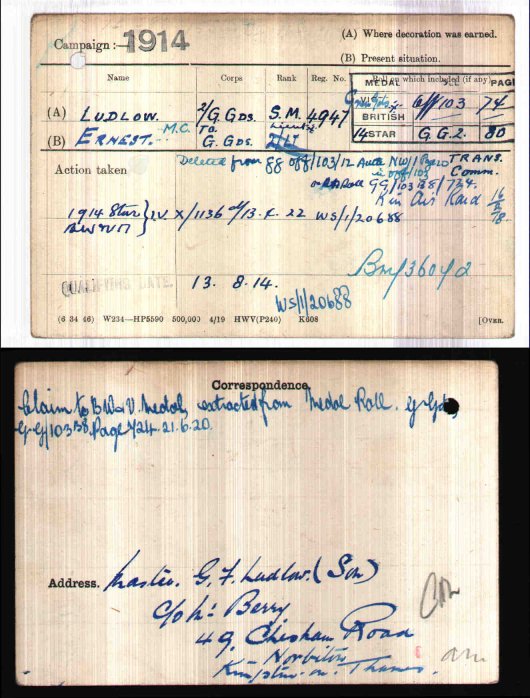 Campaign :— 1914
(A) Where decoration was earned.
(B) Present situation.
Name Corps Rank Reg. No. Roll on which included (if any)
MEDAL PAGE
(A) LUDLOW. 2/G. Gds. S.M. 4947 off 103 74
BRITISH " "
(B) ERNEST. M.C. To. G. Gds. 14 STAR G.G.2. 80
Action taken
Deleted from gg off/103/12 Auth NW/1 TRANS.
in off/103 Comm.
Roll GG/103 B8/724.
K in Air Raid 16/2/18.
1914 Star } IV X/1136 13. 22 WS/1/20688
BW & VM
QUALIFYING DATE. 13. 8. 14.
WS/1/20688
(6 34 46) W234—HP5590 500,000 4/19 HWV(P240) K608 [OVER.
Correspondence.
Claim to BW & V. Medals, extracted from Medal Roll. G Gds,
G.G/103 B8. Page 724. 21.6.20.
Address. Master. G. F. Ludlow. (Son)
c/o Mr. Berry,
49, Chesham Road
Norbiton
Kingston-on-Thames.